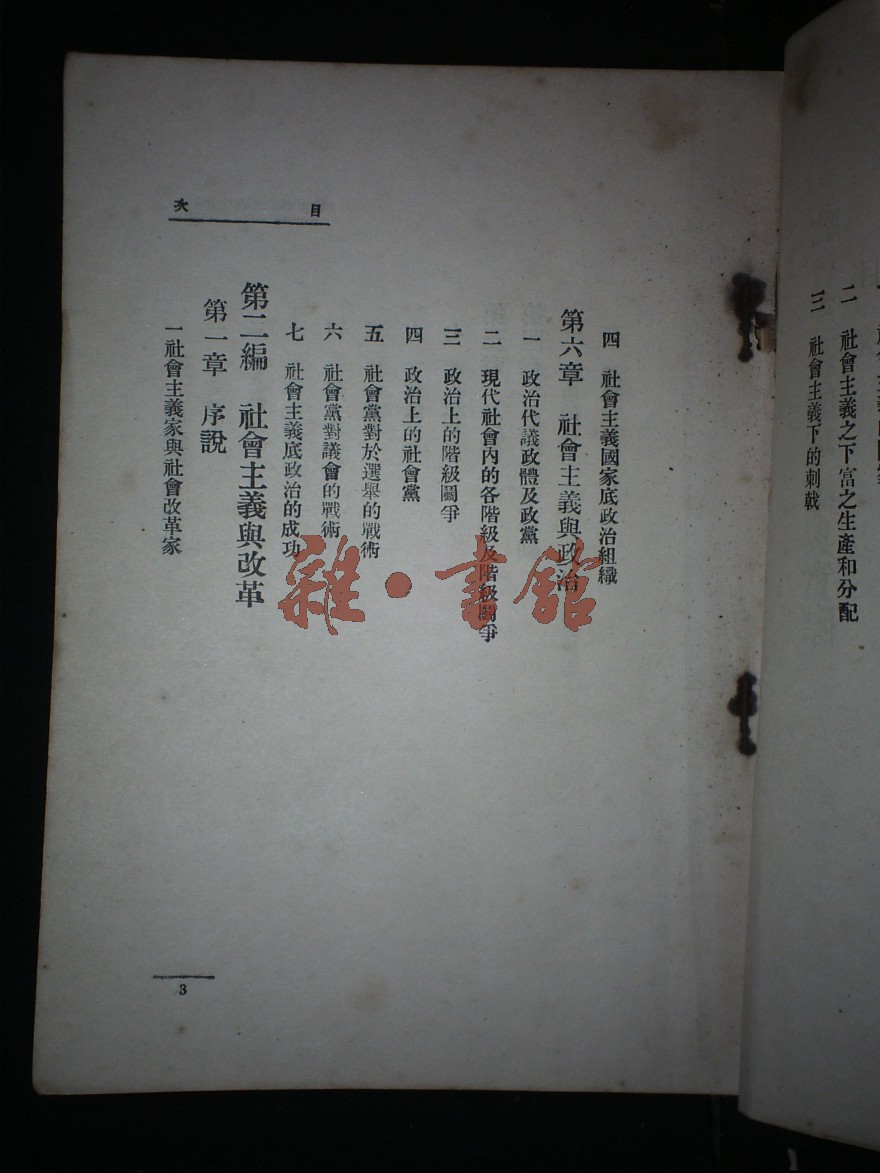 二　社會主義之下富之生產和分配
三　社會主義下的刺戟
目次
四　社會主義國家底政治組織
第六章　社會主義與政治
一　政治代議政體及政黨
二　現代社會內的各階級及階級鬭爭
三　政治上的階級鬭爭
四　政治上的社會黨
五　社會黨對於選舉的戰術
六　社會黨對議會的戰術
七　社會主義底政治的成功
第二編　社會主義與改革
第一章　序說
一社會主義家與社會改革家
3
雜·書館